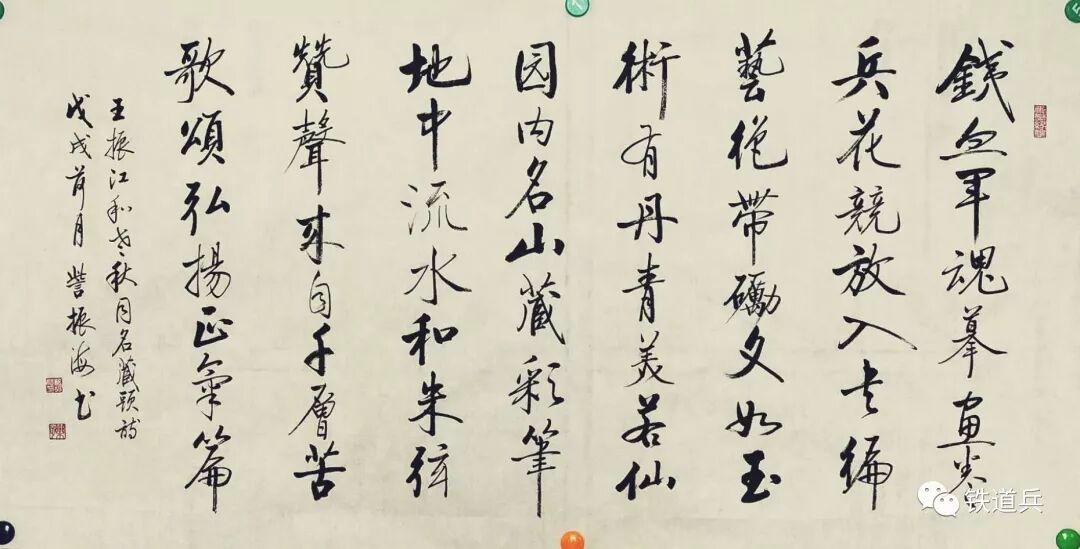 鐵血軍魂摹畫卷
兵花競放入专編
藝帶礪文如玉
術有丹青美若仙
园内名山藏彩筆
地中流水和朱弦
贊聲來自千層苦
歌頌弘揚正氣篇
王振江和老秋同名藏頭詩
戊戌荷月 訾振海书
铁道兵